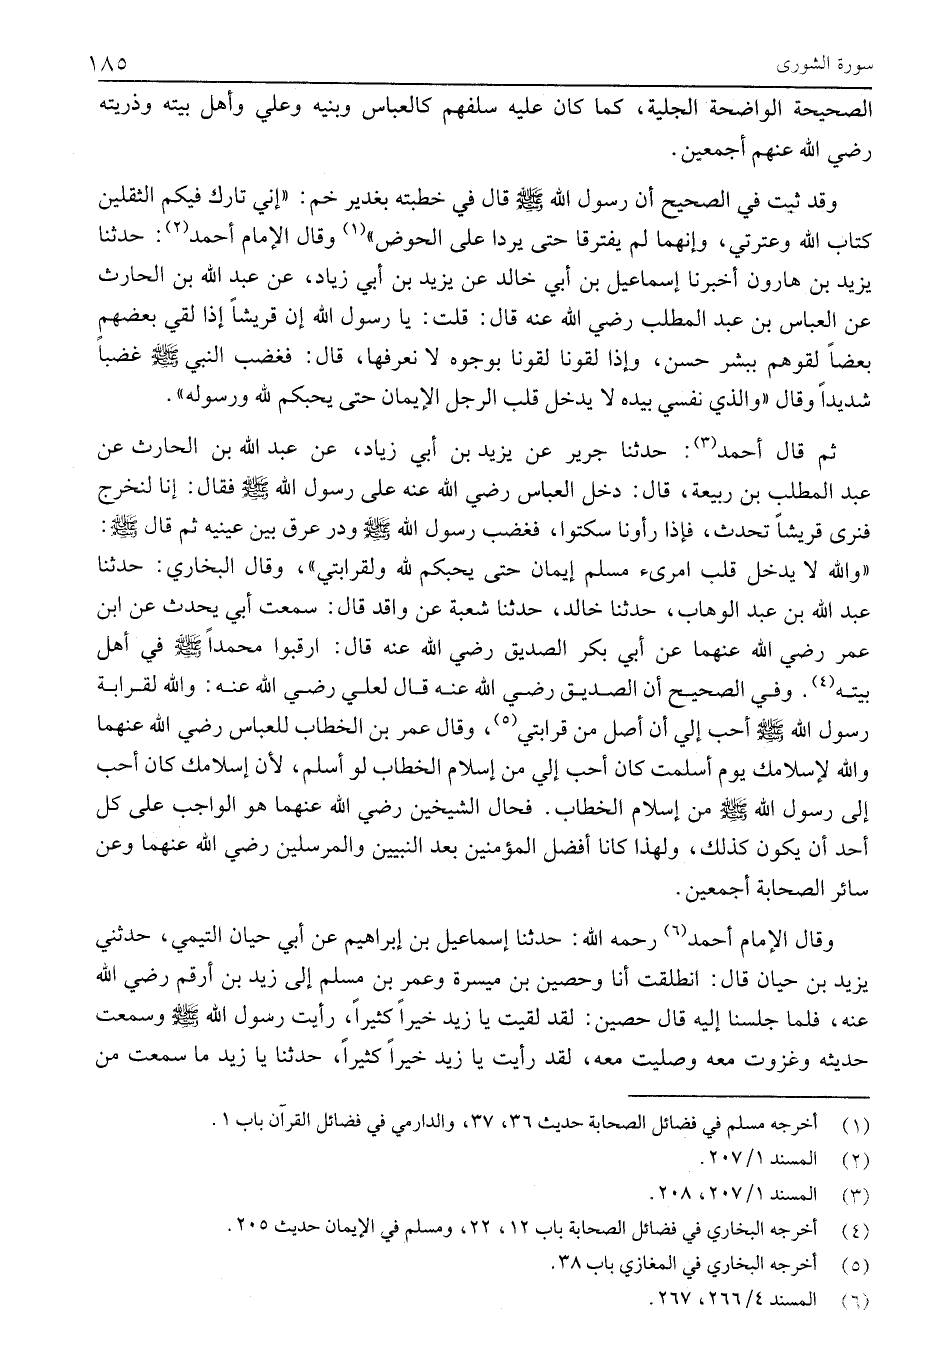 سورة الشورى ١٨٥
الصحيحة الواضحة الجلية، كما كان عليه سلفهم كالعباس وبنيه وعلي وأهل بيته وذريته
رضي الله عنهم أجمعين.
وقد ثبت في الصحيح أن رسول الله ﷺ قال في خطبته بغدير خم: «إني تارك فيكم الثقلين
كتاب الله وعترتي، وإنهما لم يفترقا حتى يردا على الحوض»(١) وقال الإمام أحمد(٢): حدثنا
يزيد بن هارون أخبرنا إسماعيل بن أبي خالد عن يزيد بن أبي زياد، عن عبد الله بن الحارث
عن العباس بن عبد المطلب رضي الله عنه قال: قلت: يا رسول الله إن قريشاً إذا لقي بعضهم
بعضاً لقوهم ببشر حسن، وإذا لقونا لقونا بوجوه لا نعرفها، قال: فغضب النبي ﷺ غضباً
شديداً وقال «والذي نفسي بيده لا يدخل قلب الرجل الإيمان حتى يحبكم لله ورسوله».
ثم قال أحمد(٣): حدثنا جرير عن يزيد بن أبي زياد، عن عبد الله بن الحارث عن
عبد المطلب بن ربيعة، قال: دخل العباس رضي الله عنه على رسول الله ﷺ فقال: إنا لنخرج
فنرى قريشاً تحدث، فإذا رأونا سكتوا، فغضب رسول الله ﷺ ودر عرق بين عينيه ثم قال ﷺ:
«والله لا يدخل قلب امرىء مسلم إيمان حتى يحبكم لله ولقرابتي»، وقال البخاري: حدثنا
عبد الله بن عبد الوهاب، حدثنا خالد، حدثنا شعبة عن واقد قال: سمعت أبي يحدث عن ابن
عمر رضي الله عنهما عن أبي بكر الصديق رضي الله عنه قال: ارقبوا محمداً ﷺ في أهل
بيته(٤). وفي الصحيح أن الصديق رضي الله عنه قال لعلي رضي الله عنه: والله لقرابة
رسول الله ﷺ أحب إلي أن أصل من قرابتي(٥)، وقال عمر بن الخطاب للعباس رضي الله عنهما
والله لإسلامك يوم أسلمت كان أحب إلي من إسلام الخطاب لو أسلم، لأن إسلامك كان أحب
إلى رسول الله ﷺ من إسلام الخطاب. فحال الشيخين رضي الله عنهما هو الواجب على كل
أحد أن يكون كذلك، ولهذا كانا أفضل المؤمنين بعد النبيين والمرسلين رضي الله عنهما وعن
سائر الصحابة أجمعين.
وقال الإمام أحمد(٦) رحمه الله: حدثنا إسماعيل بن إبراهيم عن أبي حيان التيمي، حدثني
يزيد بن حيان قال: انطلقت أنا وحصين بن ميسرة وعمر بن مسلم إلى زيد بن أرقم رضي الله
عنه، فلما جلسنا إليه قال حصين: لقد لقيت يا زيد خيراً كثيراً، رأيت رسول الله ﷺ وسمعت
حديثه وغزوت معه وصليت معه، لقد رأيت يا زيد خيراً كثيراً، حدثنا يا زيد ما سمعت من
(١) أخرجه مسلم في فضائل الصحابة حديث ٣٦، ٣٧، والدارمي في فضائل القرآن باب ١.
(٢) المسند ٢٠٧/١.
(٣) المسند ٢٠٧/١، ٢٠٨.
(٤) أخرجه البخاري في فضائل الصحابة باب ١٢، ٢٢، ومسلم في الإيمان حديث ٢٠٥.
(٥) أخرجه البخاري في المغازي باب ٣٨.
(٦) المسند ٢٦٦/٤، ٢٦٧.